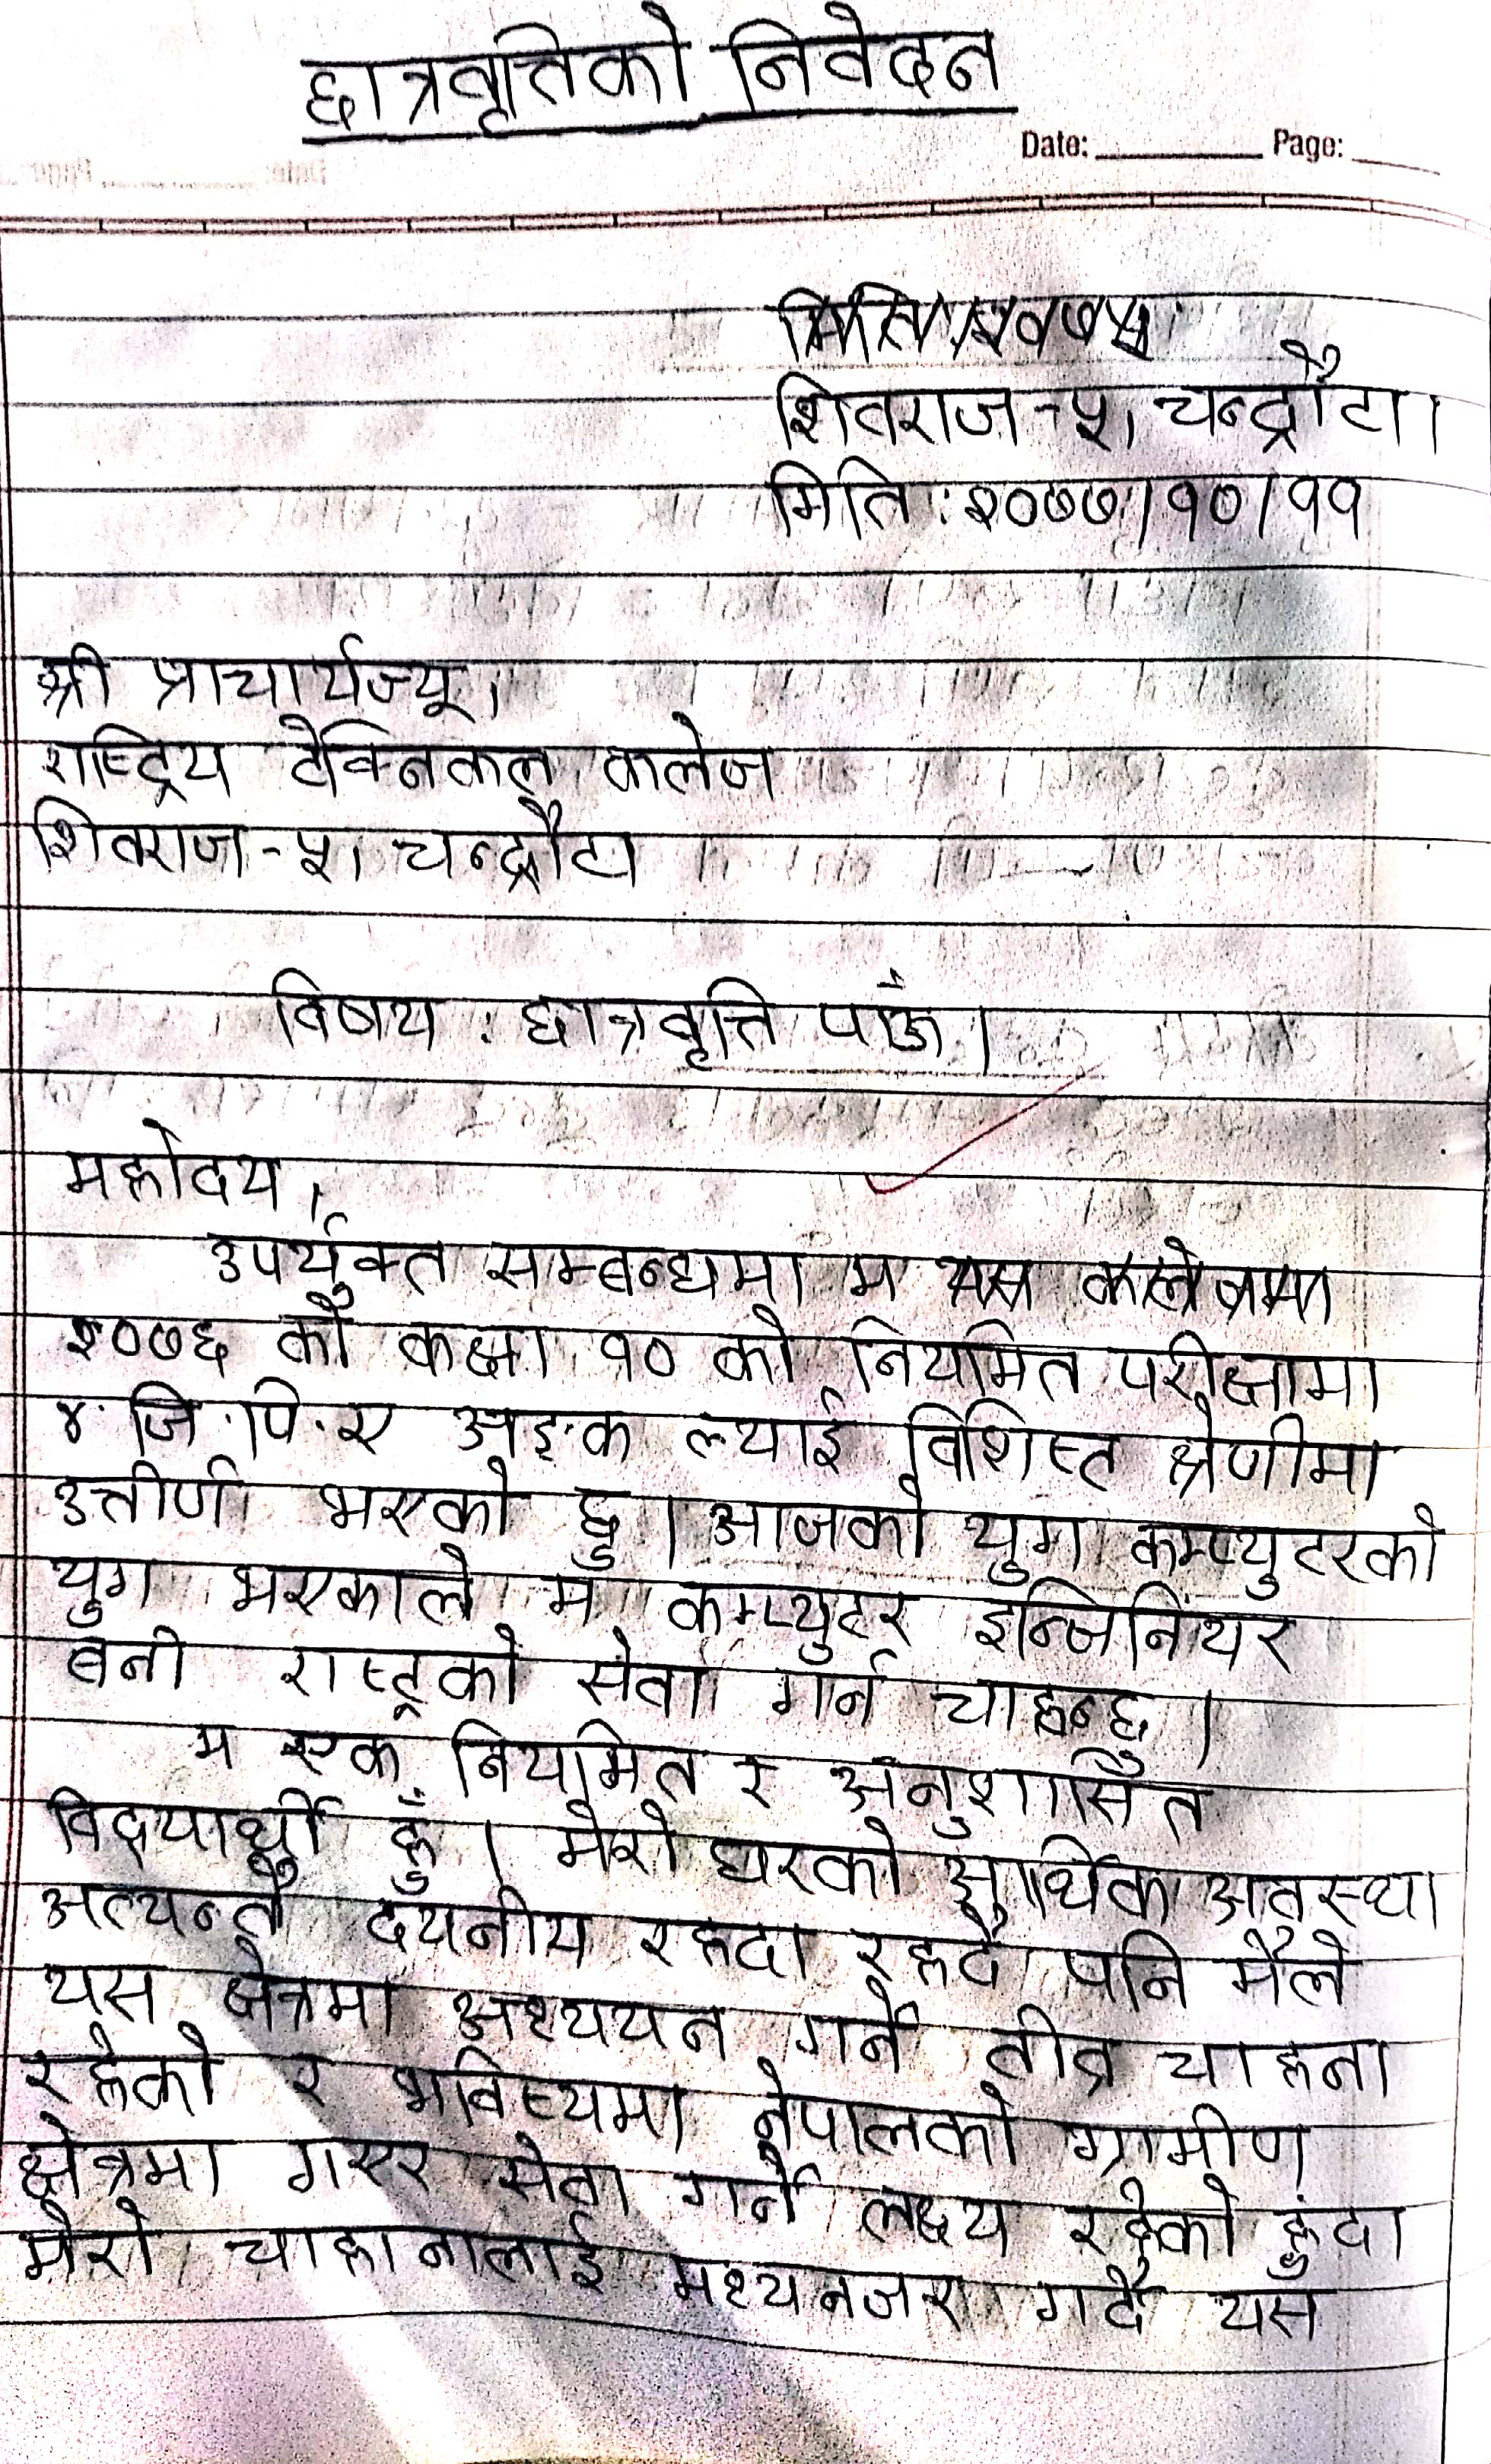 छात्रवृत्तिको निवेदन
Date: Page:
शिवराज-५, चन्द्रौटा।
मिति : २०७७/१०/११
श्री प्राचार्यज्यू,
राष्ट्रिय टेक्निकल कलेज
शिवराज-५, चन्द्रौटा
विषय : छात्रवृत्ति पाऊँ।
महोदय,
उपर्युक्त सम्बन्धमा म यस कलेजमा
२०७६ को कक्षा १० को नियमित परीक्षामा
४ जि.पि.ए अङ्क ल्याई विशिस्त श्रेणीमा
उत्तीर्ण भएको छु। आजको युग कम्प्युटरको
युग भएकाले म कम्प्युटर इन्जिनियर
बनी राष्ट्रको सेवा गर्न चाहन्छु।
म एक नियमित र अनुशासित
विद्यार्थी हुँ। मेरो घरको आर्थिक अवस्था
अत्यन्तै दयनीय रहदा रहदै पनि मैले
यस क्षेत्रमा अध्ययन गर्ने तीव्र चाहना
रहेको र भविष्यमा नेपालको ग्रामीण
क्षेत्रमा गएर सेवा गर्ने लक्ष्य रहेको हुंदा
मेरो चाहानालाई मध्यनजर गर्दै यस